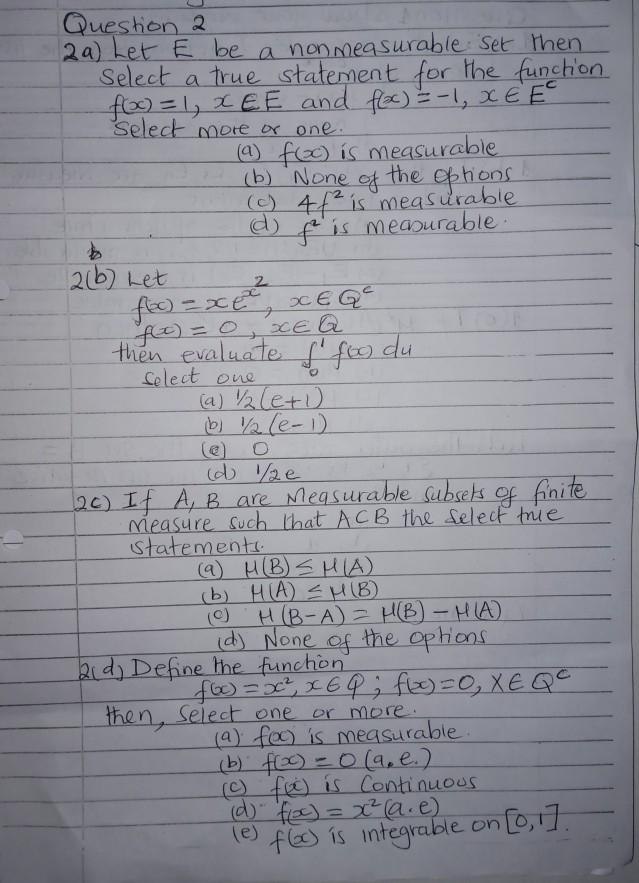 Question 2
2a) Let E be a nonmeasurable set then
Select a true statement for the function
f(x) = 1, x ∈ E and f(x) = -1, x ∈ E^c
Select more or one.
(a) f(x) is measurable
(b) None of the options
(c) 4f² is measurable
(d) f² is meaourable.
2(b) Let
f(x) = xe^x², x ∈ Q^c
f(x) = 0, x ∈ Q
then evaluate ∫₀¹ f(x) du
Select one
(a) 1/2(e+1)
(b) 1/2(e-1)
(c) 0
(d) 1/2e
2c) If A, B are Measurable subsets of finite
measure such that A⊂B the select true
statements.
(a) μ(B) ≤ μ(A)
(b) μ(A) ≤ μ(B)
(c) μ(B-A) = μ(B) - μ(A)
(d) None of the options
2(d) Define the function
f(x) = x², x ∈ Q; f(x) = 0, X ∈ Q^c
then, Select one or more.
(a) f(x) is measurable.
(b) f(x) = 0 (a.e.)
(c) f(x) is Continuous
(d) f(x) = x² (a.e)
(e) f(x) is integrable on [0,1].